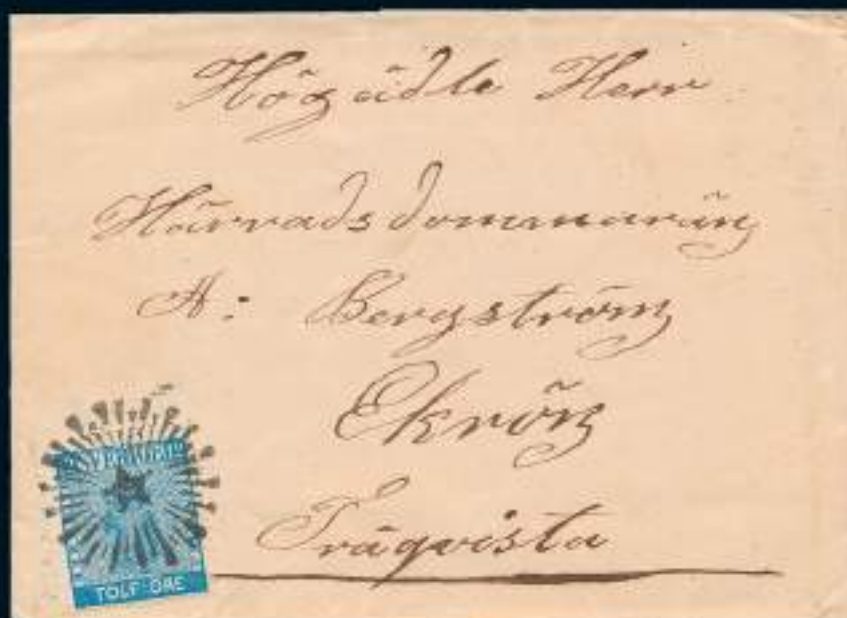 Högädle Herr
Härradsdommarän
A: Bergström
Ekrön
Tråqvista
TOLF ÖRE